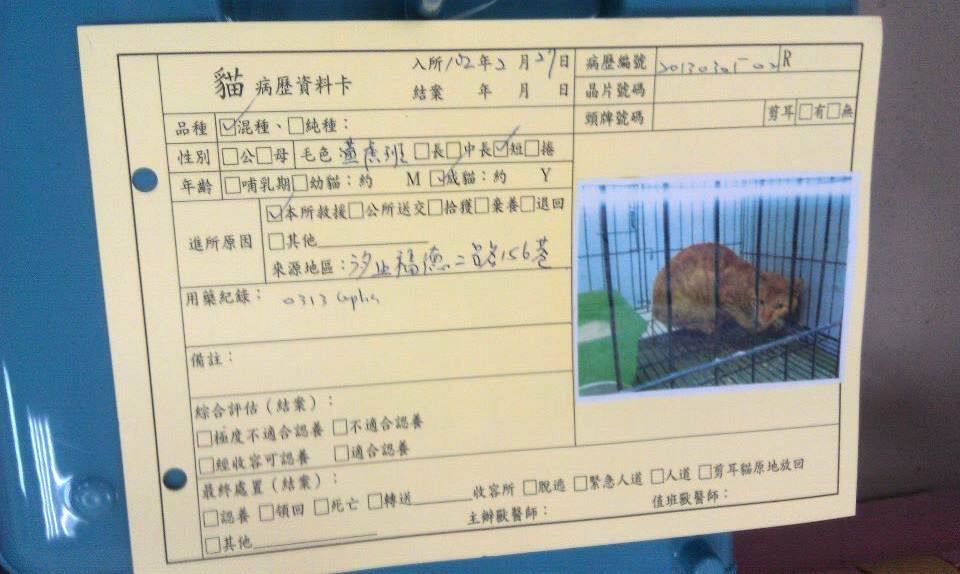 貓 病歷資料卡
入所102年2月27日
結案 年 月 日
病歷編號 20130305-02 R
晶片號碼
頸牌號碼 剪耳 □有□無
品種 ☑混種、□純種：
性別 □公□母 毛色 黃虎斑 □長□中長☑短□捲
年齡 □哺乳期□幼貓：約 M ☑成貓：約 Y
進所原因 ☑本所救援□公所送交□拾獲□棄養□退回
□其他
來源地區：汐止福德二路156巷
用藥紀錄：0313
備註：
綜合評估（結案）：
□極度不適合認養 □不適合認養
□經收容可認養 □適合認養
最終處置（結案）：
□認養 □領回 □死亡 □轉送 收容所 □脫逃 □緊急人道 □人道 □剪耳貓原地放回
□其他
主辦獸醫師： 值班獸醫師：